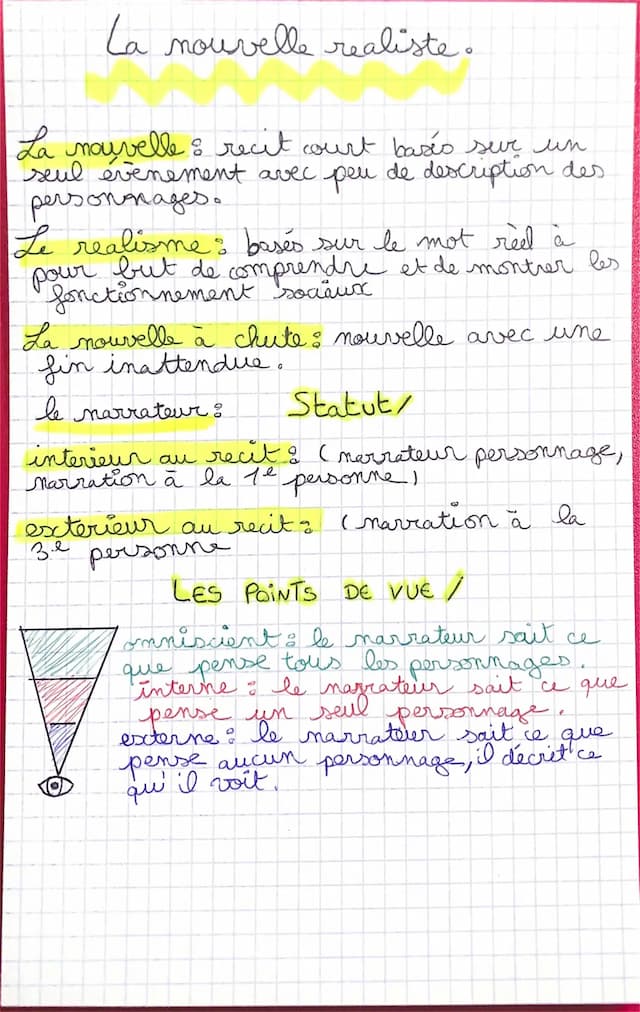 La nouvelle realiste.
La nouvelle : recit court basés sur un
seul évènement avec peu de description des
personnages.
Le realisme : basés sur le mot rèel à
pour but de comprendre et de montrer les
fonctionnement sociaux
La nouvelle à chute : nouvelle avec une
fin inattendue.
le narrateur : Statut/
interieur au recit : (narrateur personnage,
narration à la 1e personne)
exterieur au recit : (narration à la
3e personne
LES POINTS DE VUE /
omniscient : le narrateur sait ce
que pense tous les personnages.
interne : le narrateur sait ce que
pense un seul personnage.
externe : le narrateur sait ce que
pense aucun personnage, il décrit ce
qu'il voit.